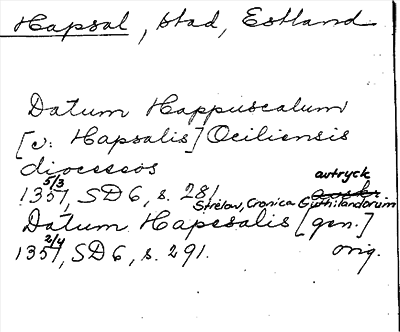 Hapsal, stad, Estland
Datum Happuscalum
[v: Hapsalis] Ociliensis
dioceseos
1357 5/3, SD 6, s. 281. avtryck
Strelow, Cronica Guthilandorum
Datum Hapesalis [gen.]
1357 2/4, SD 6, s. 291. orig.